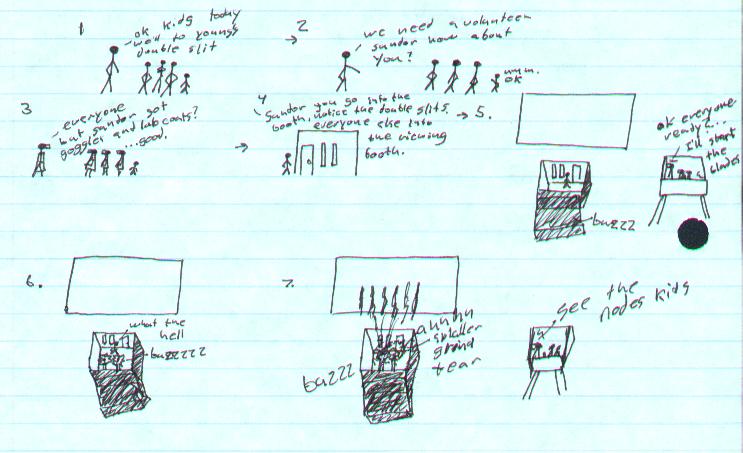 1
ok kids today
well to youngs
double slit
2
we need a volunteer
sundor how about
you?
umm.
ok
3
everyone
but sundor got
goggles and lab coats?
...good.
4
sundor you go into the
booth, notice the double slits.
everyone else into
the viewing
booth.
5.
ok everyone
ready?...
I'll start
the
blades
buzzz
6.
what the
hell
buzzzzz
7.
ahhhh
splatter
grind
tear
buzzz
see the
nodes kids